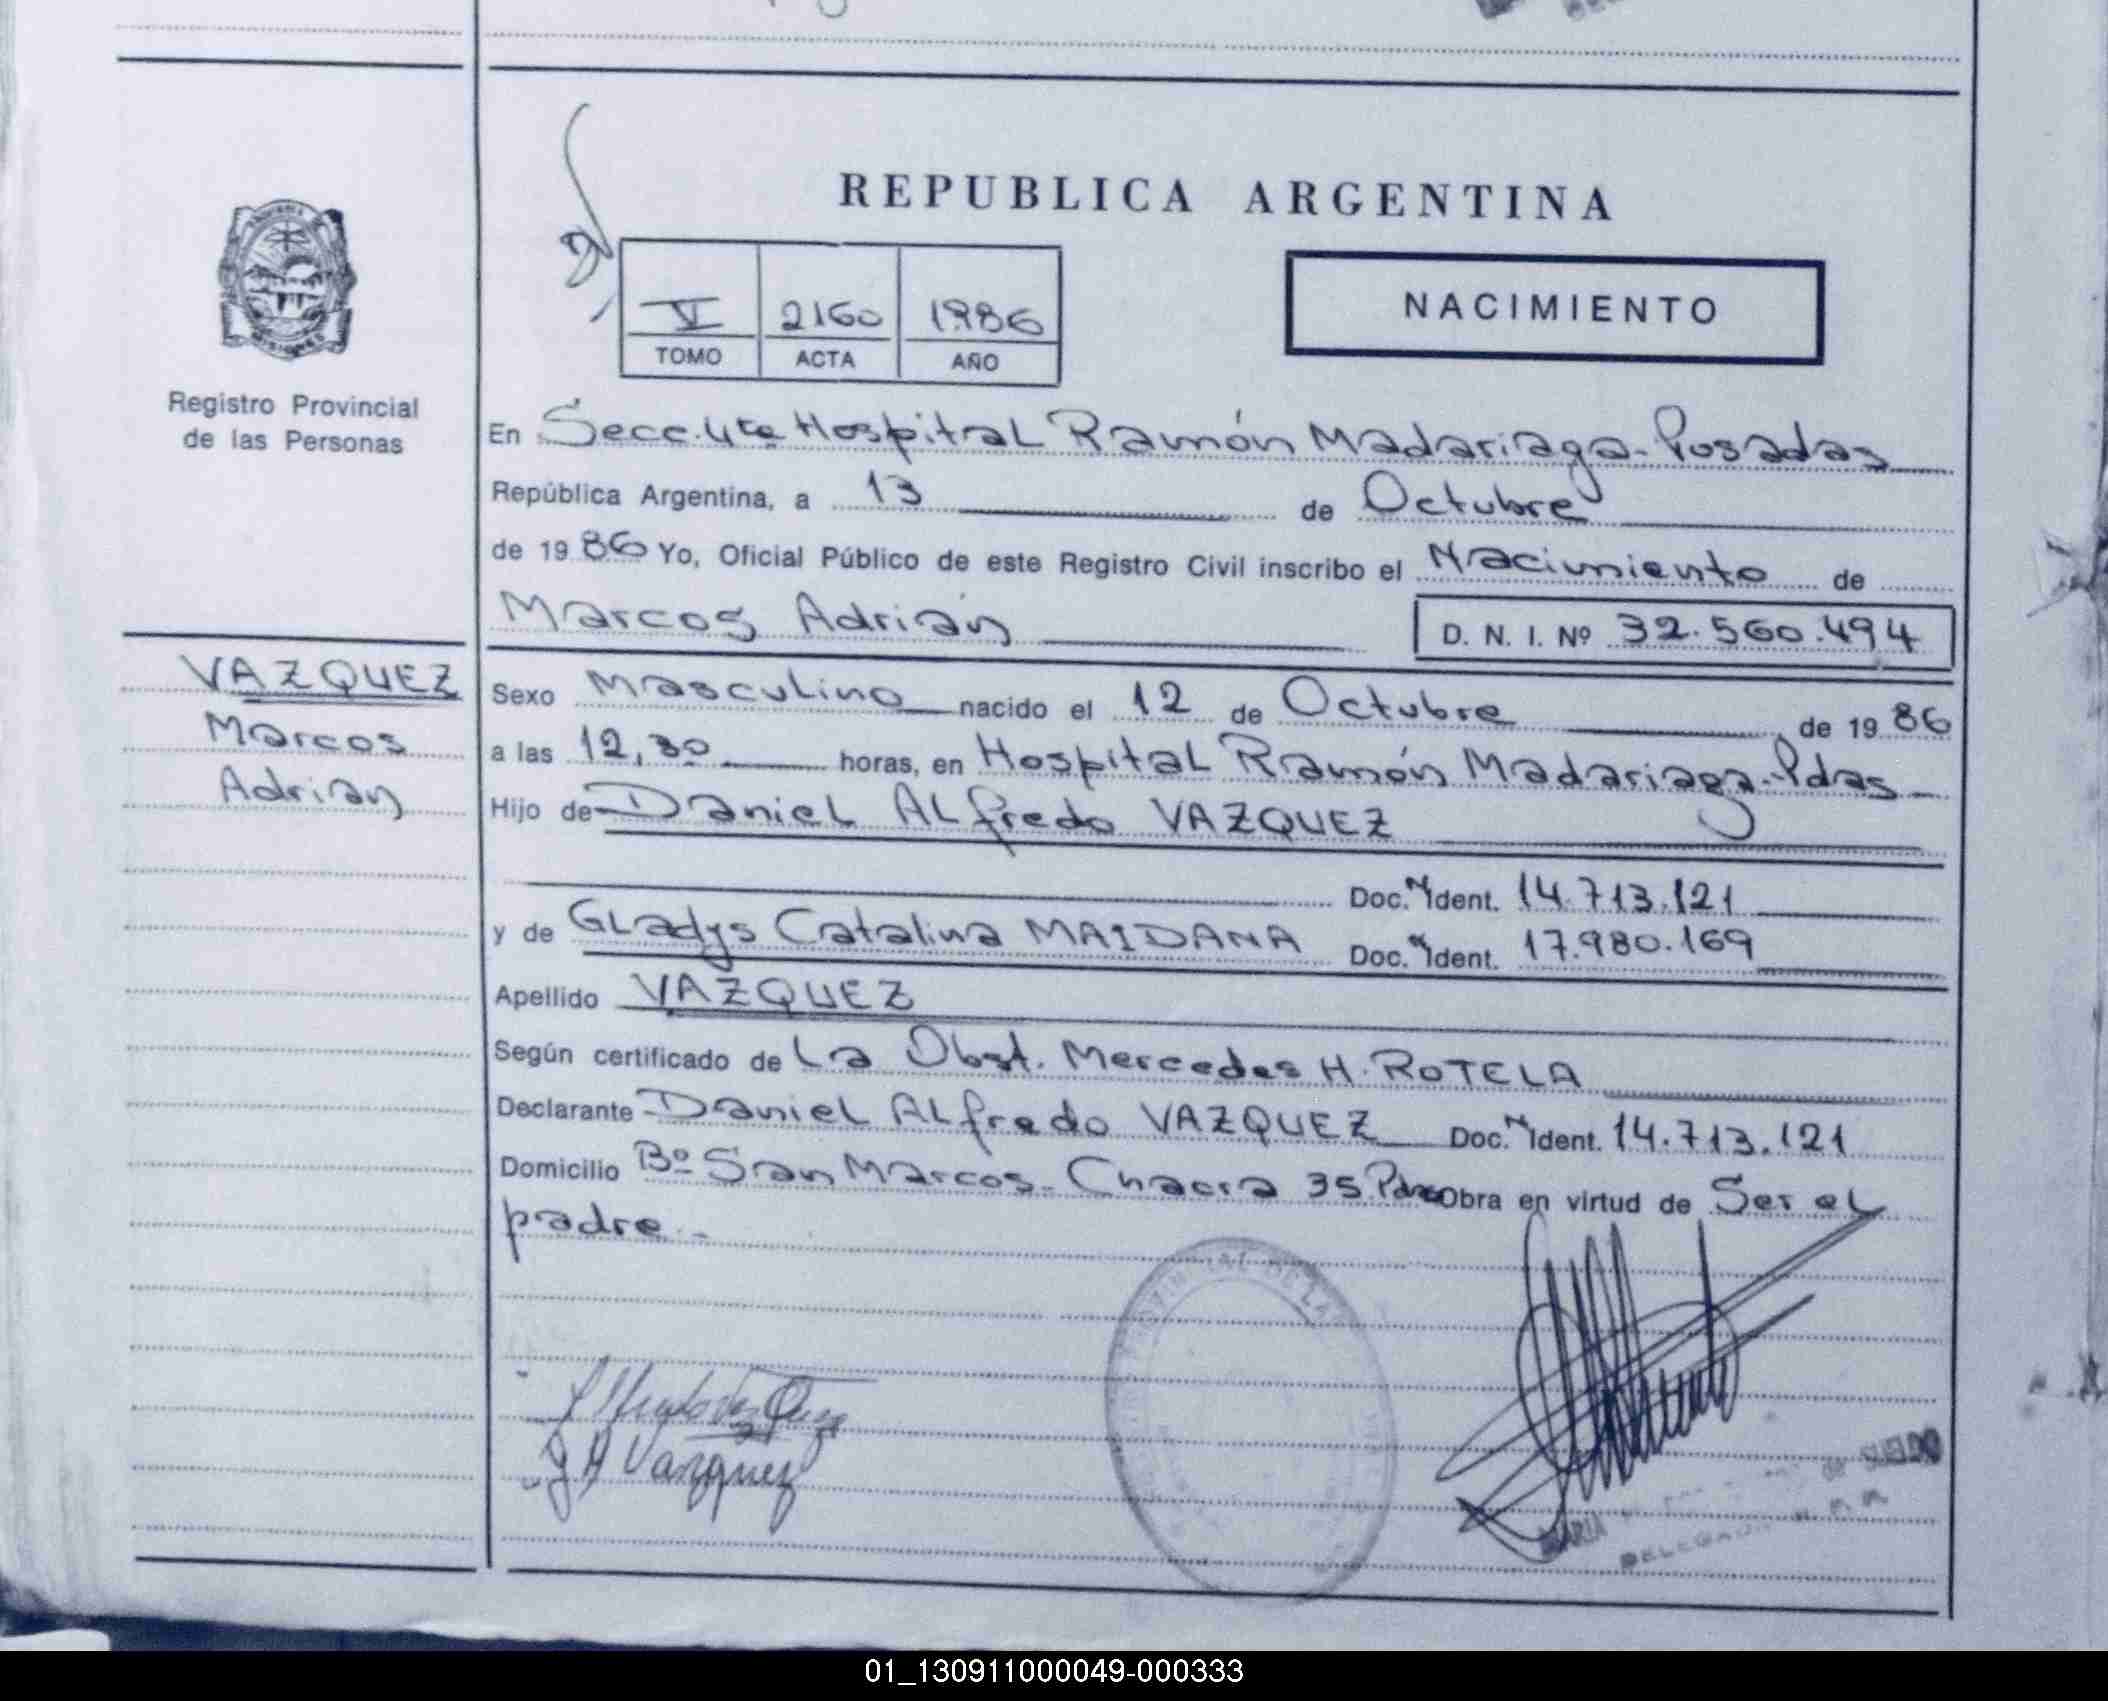 REPUBLICA ARGENTINA
V 2160 1986
TOMO ACTA AÑO
NACIMIENTO
Registro Provincial
de las Personas
En Secc. 4ta Hospital Ramón Madariaga - Posadas
República Argentina, a 13 de Octubre
de 1986 Yo, Oficial Público de este Registro Civil inscribo el Nacimiento de
Marcos Adrián
D. N. I. Nº 32.560.494
VAZQUEZ
Marcos
Adrián
Sexo Masculino nacido el 12 de Octubre de 1986
a las 12,30 horas, en Hospital Ramón Madariaga - Pdas
Hijo de Daniel Alfredo VAZQUEZ
Doc. N Ident. 14.713.121
y de Gladys Catalina MAIDANA Doc. N Ident. 17.980.169
Apellido VAZQUEZ
Según certificado de La Obst. Mercedes H. ROTELA
Declarante Daniel Alfredo VAZQUEZ Doc. N Ident. 14.713.121
Domicilio Bº San Marcos - Chacra 35 Obra en virtud de Ser el
padre.-
Vazquez
MARIA
01_130911000049-000333